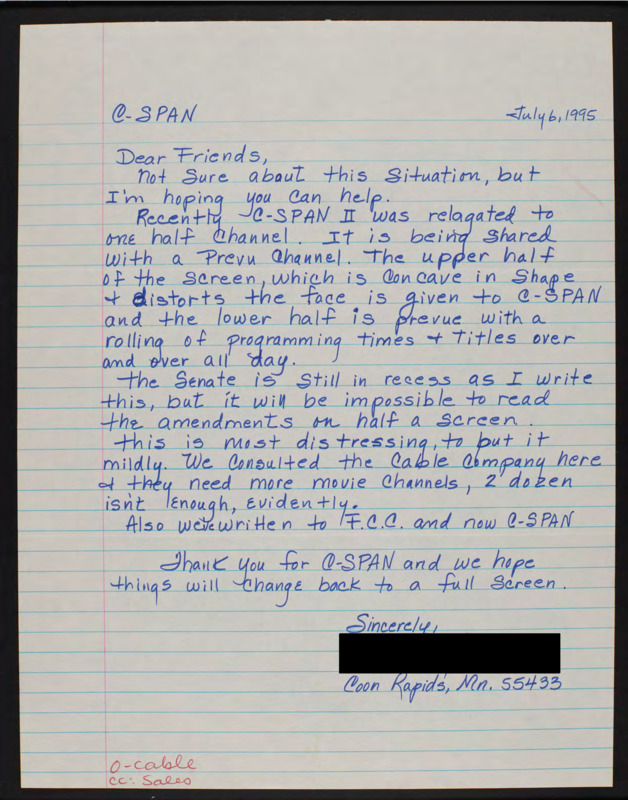 C-SPAN July 6, 1995
Dear Friends,
Not Sure about this Situation, but
I'm hoping you can help.
Recently C-SPAN II was relagated to
one half Channel. It is being Shared
with a Prevu Channel. The upper half
of the Screen, which is Concave in Shape
+ distorts the face is given to C-SPAN
and the lower half is prevue with a
rolling of programming times + Titles over
and over all day.
The Senate is Still in recess as I write
this, but it will be impossible to read
the amendments on half a screen.
This is most distressing, to put it
mildly. We Consulted the Cable Company here
+ they need more movie Channels, 2 dozen
isn't Enough, Evidently.
Also we've written to F.C.C. and now C-SPAN
Thank you for C-SPAN and we hope
things will Change back to a full Screen.
Sincerely,
Coon Rapids, Mn. 55433
O-cable
cc: Sales